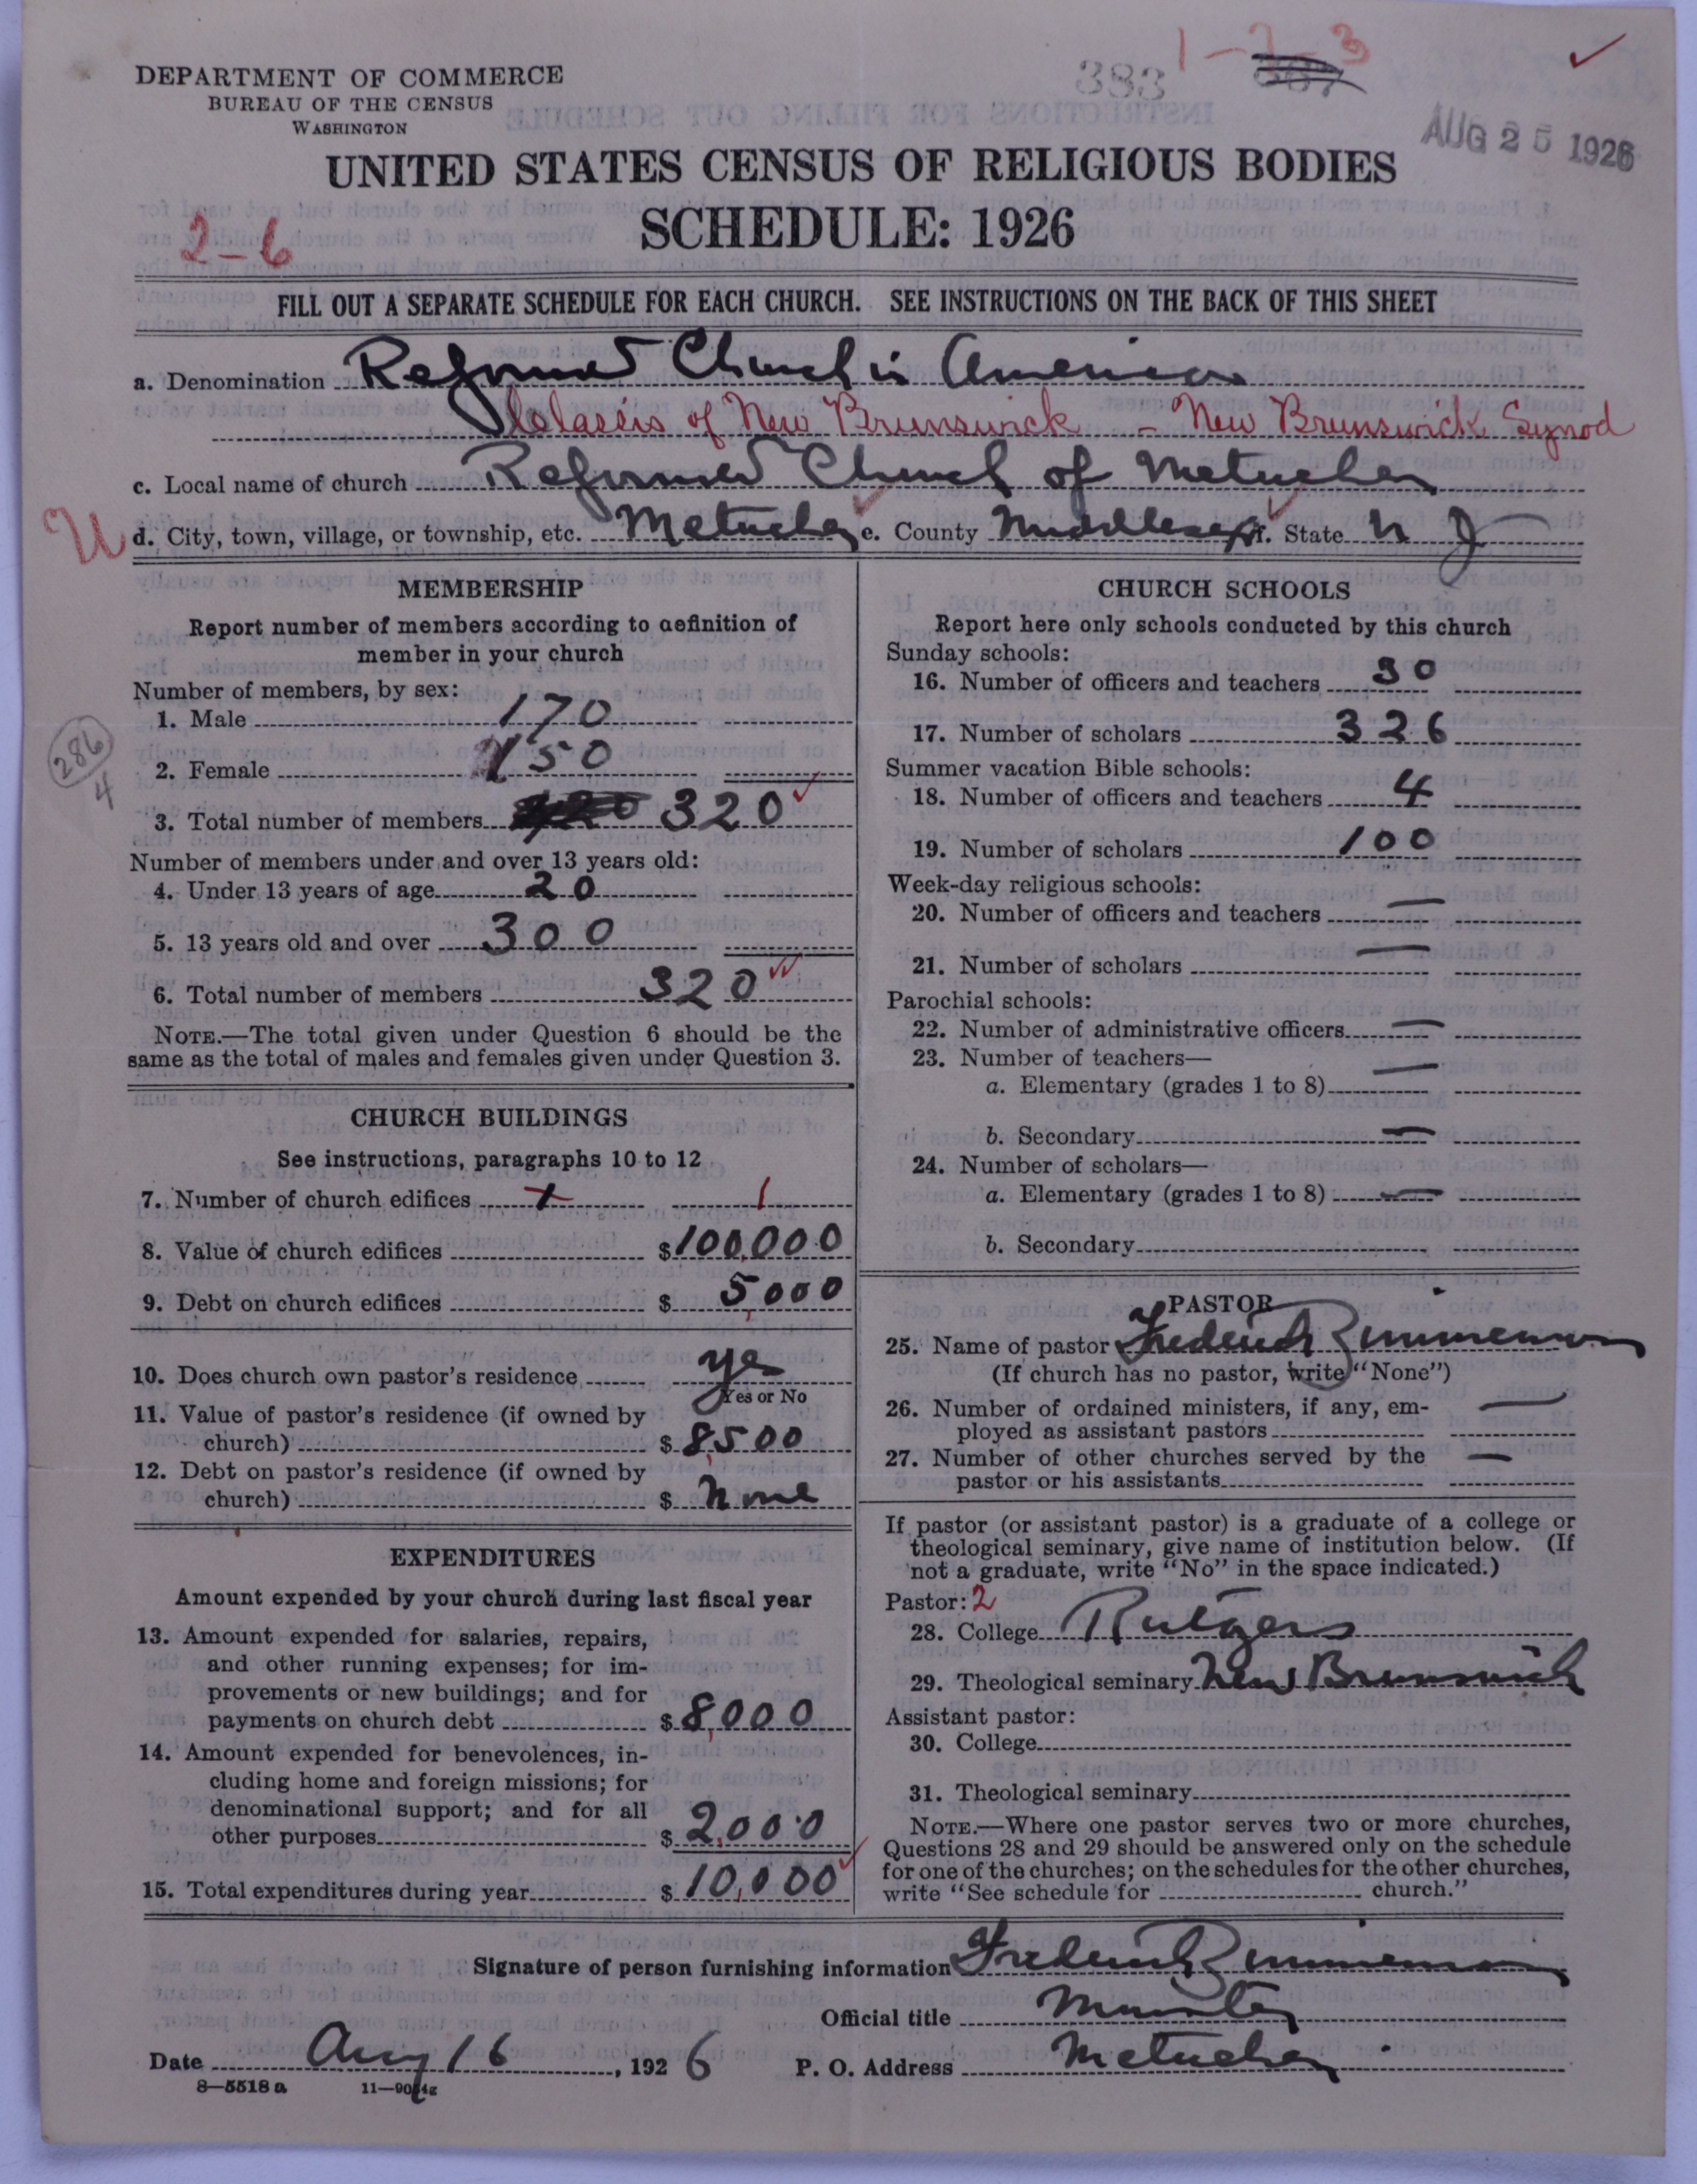 383 1-2-3
DEPARTMENT OF COMMERCE
BUREAU OF THE CENSUS
WASHINGTON
AUG 25 1926
UNITED STATES CENSUS OF RELIGIOUS BODIES
SCHEDULE: 1926
2-6
FILL OUT A SEPARATE SCHEDULE FOR EACH CHURCH. SEE INSTRUCTIONS ON THE BACK OF THIS SHEET
a. Denomination Reformed Church in America
Classis of New Brunswick - New Brunswick Synod
c. Local name of church Reformed Church of Metuchen
U d. City, town, village, or township, etc. Metuchen e. County Middlesex f. State N J
MEMBERSHIP
Report number of members according to definition of
member in your church
Number of members, by sex:
1. Male 170
2. Female 150
286
4
3. Total number of members 320
Number of members under and over 13 years old:
4. Under 13 years of age 20
5. 13 years old and over 300
6. Total number of members 320
NOTE.—The total given under Question 6 should be the
same as the total of males and females given under Question 3.
CHURCH BUILDINGS
See instructions, paragraphs 10 to 12
7. Number of church edifices 1 1
8. Value of church edifices $100,000
9. Debt on church edifices $ 5,000
10. Does church own pastor's residence yes
Yes or No
11. Value of pastor's residence (if owned by
church) $ 8,500
12. Debt on pastor's residence (if owned by
church) $ None
EXPENDITURES
Amount expended by your church during last fiscal year
13. Amount expended for salaries, repairs,
and other running expenses; for im-
provements or new buildings; and for
payments on church debt $ 8,000
14. Amount expended for benevolences, in-
cluding home and foreign missions; for
denominational support; and for all
other purposes $ 2,000
15. Total expenditures during year $ 10,000
CHURCH SCHOOLS
Report here only schools conducted by this church
Sunday schools:
16. Number of officers and teachers 30
17. Number of scholars 326
Summer vacation Bible schools:
18. Number of officers and teachers 4
19. Number of scholars 100
Week-day religious schools:
20. Number of officers and teachers —
21. Number of scholars —
Parochial schools:
22. Number of administrative officers —
23. Number of teachers—
a. Elementary (grades 1 to 8) —
b. Secondary —
24. Number of scholars—
a. Elementary (grades 1 to 8) —
b. Secondary
PASTOR
25. Name of pastor Frederick Zimmerman
(If church has no pastor, write "None")
26. Number of ordained ministers, if any, em-
ployed as assistant pastors —
27. Number of other churches served by the
pastor or his assistants —
If pastor (or assistant pastor) is a graduate of a college or
theological seminary, give name of institution below. (If
not a graduate, write "No" in the space indicated.)
Pastor: 2
28. College Rutgers
29. Theological seminary New Brunswick
Assistant pastor:
30. College
31. Theological seminary
NOTE.—Where one pastor serves two or more churches,
Questions 28 and 29 should be answered only on the schedule
for one of the churches; on the schedules for the other churches,
write "See schedule for church."
Signature of person furnishing information Frederick Zimmerman
Official title Minister
Date Aug 16, 1926 P. O. Address Metuchen
8—5518 a